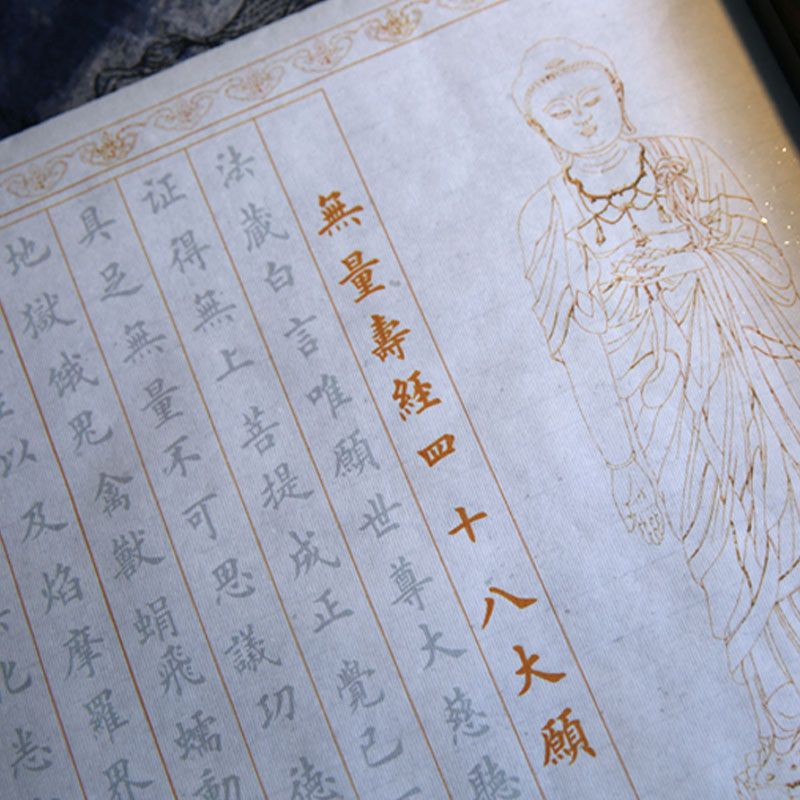 無量壽経四十八大願
法藏白言唯願世尊大慈聽
证得無上菩提成正覺已
具足無量不可思議功德
地獄餓鬼禽獸蜎飛蠕動
以及焰摩羅界
化悉